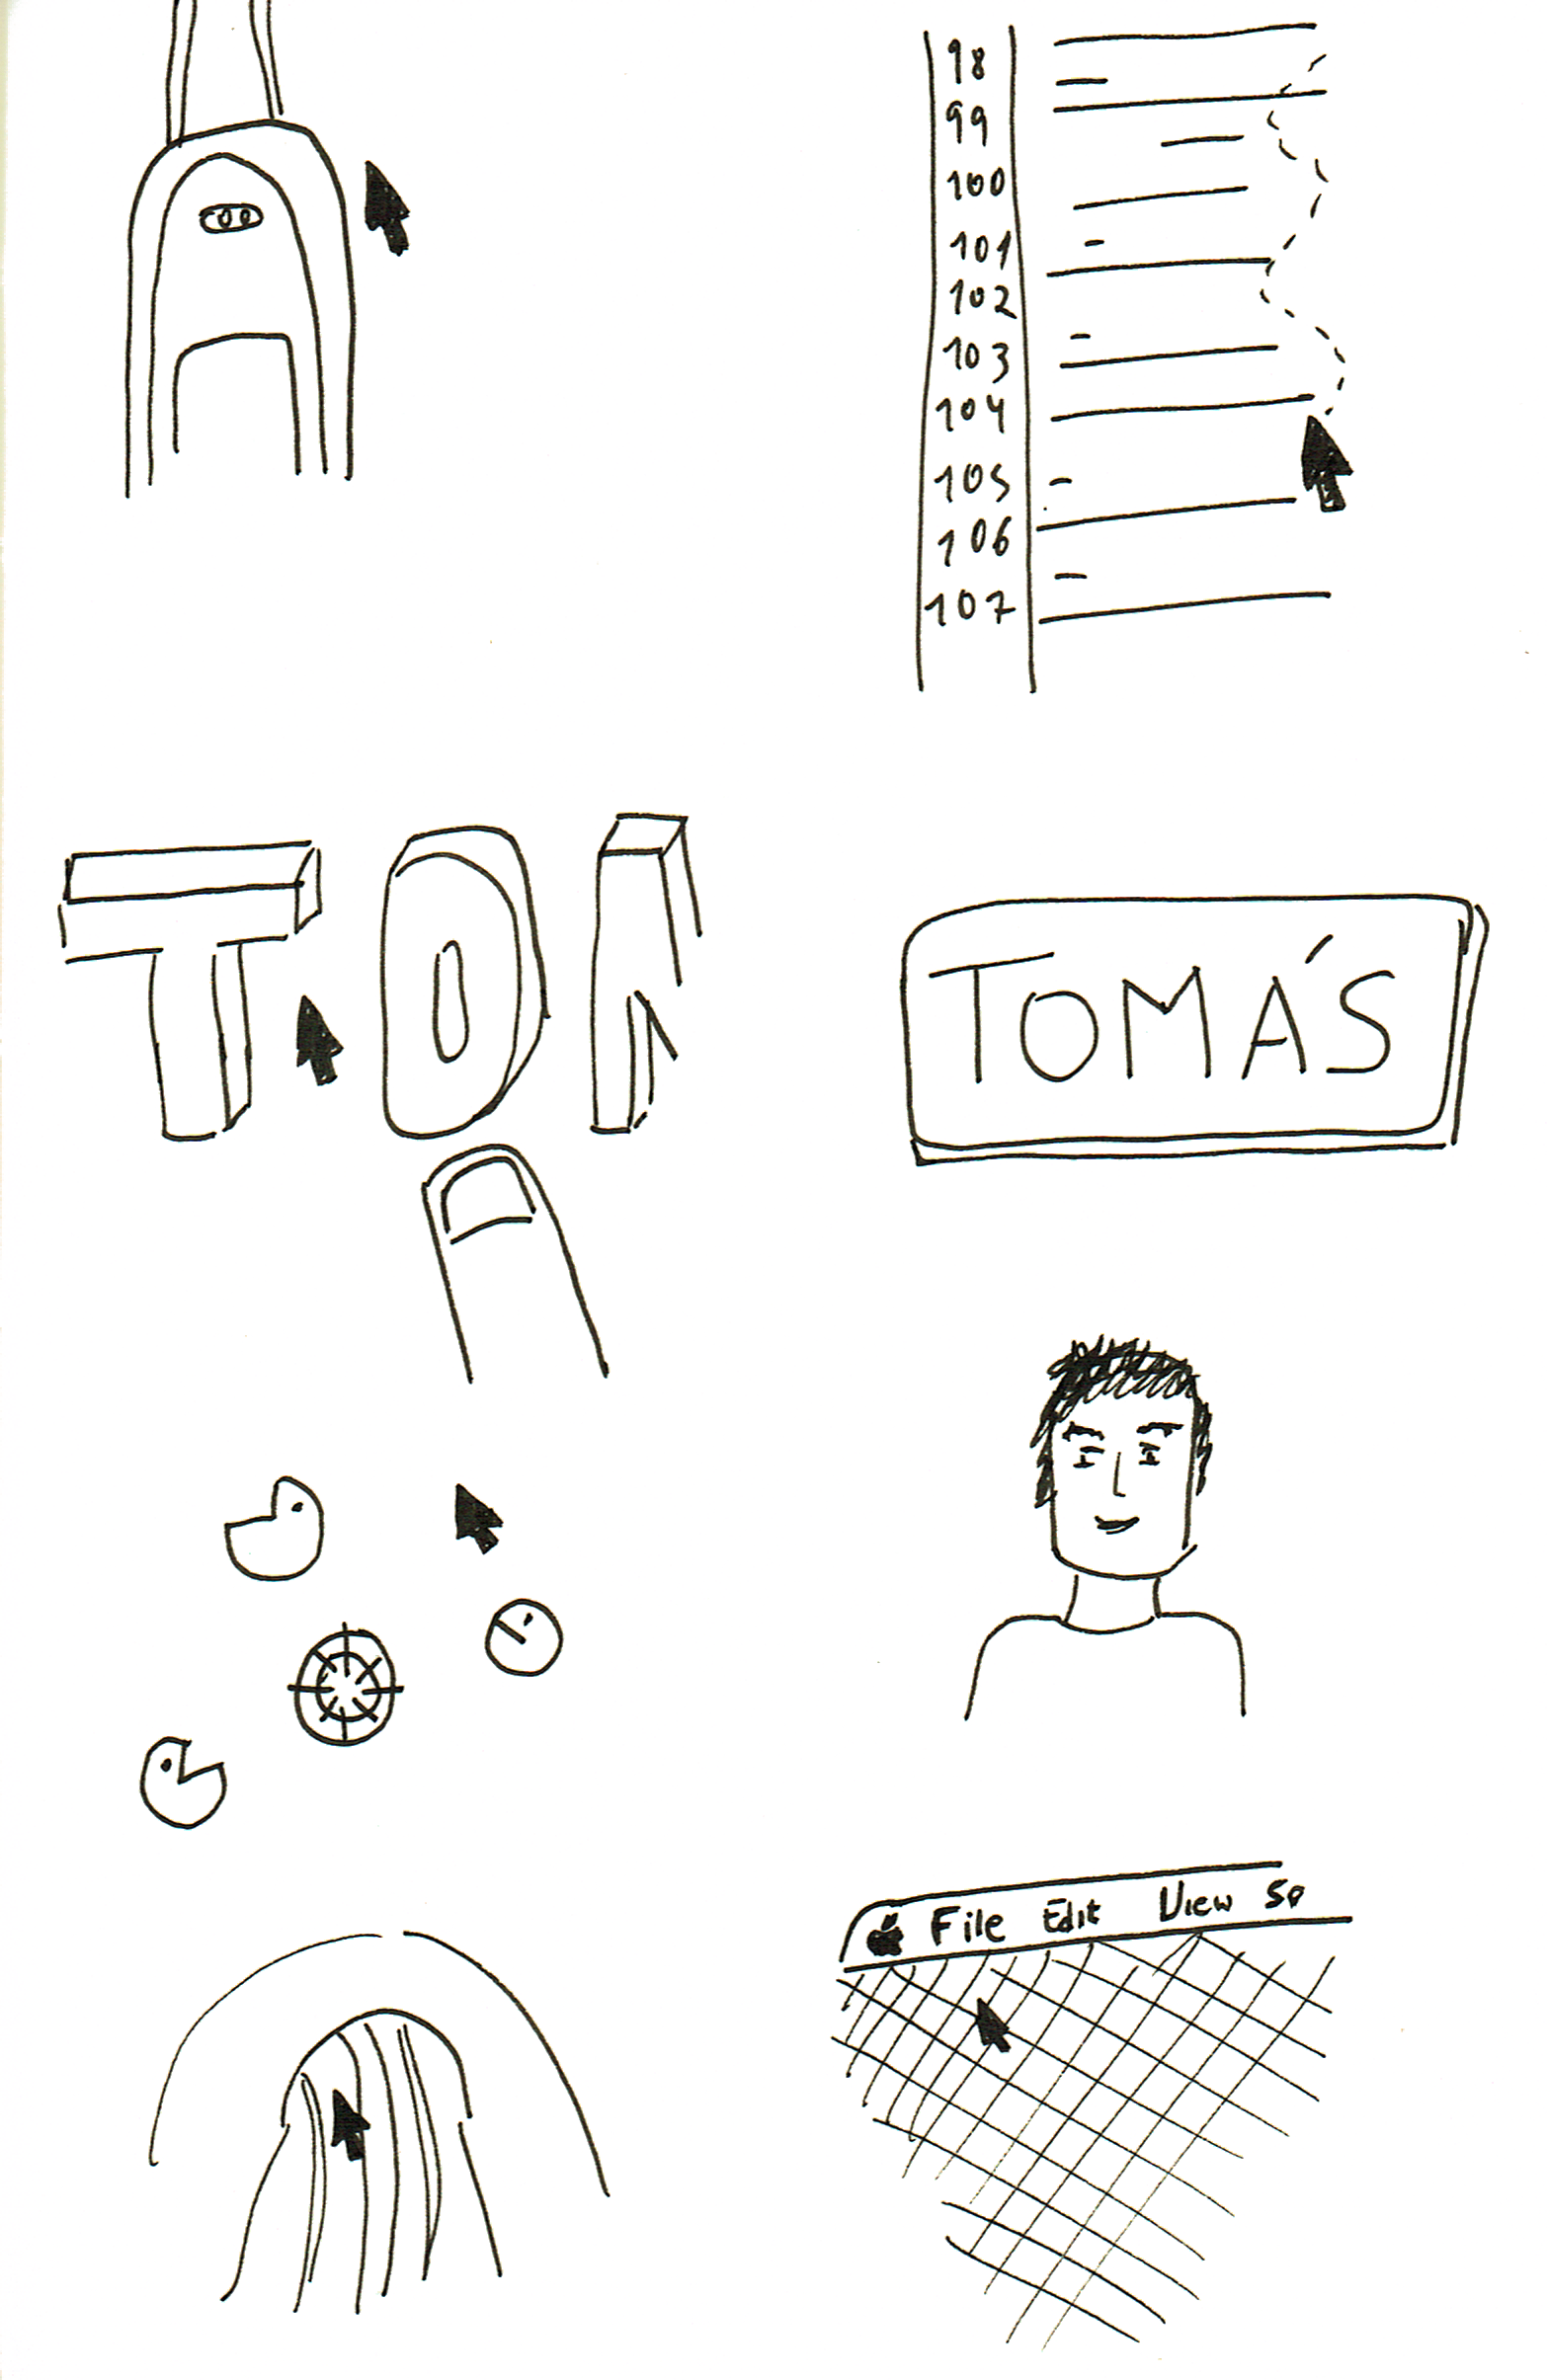 98
99
100
101
102
103
104
105
106
107
TOM
TOMÁS
File Edit View Sp